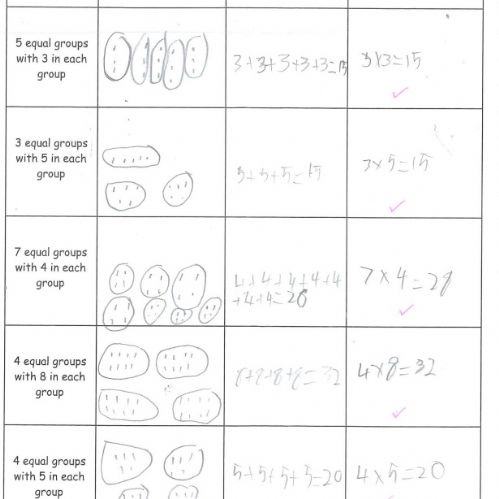 5 equal groups
with 3 in each
group
3+3+3+3+3=15
=15
3 equal groups
with 5 in each
group
5+5+5=15
3×5=15
7 equal groups
with 4 in each
group
4+4+4+4+4
+4+4=28
7×4=28
4 equal groups
with 8 in each
group
8+8+8+8=32
4×8=32
4 equal groups
with 5 in each
group
5+5+5+5=20
4×5=20